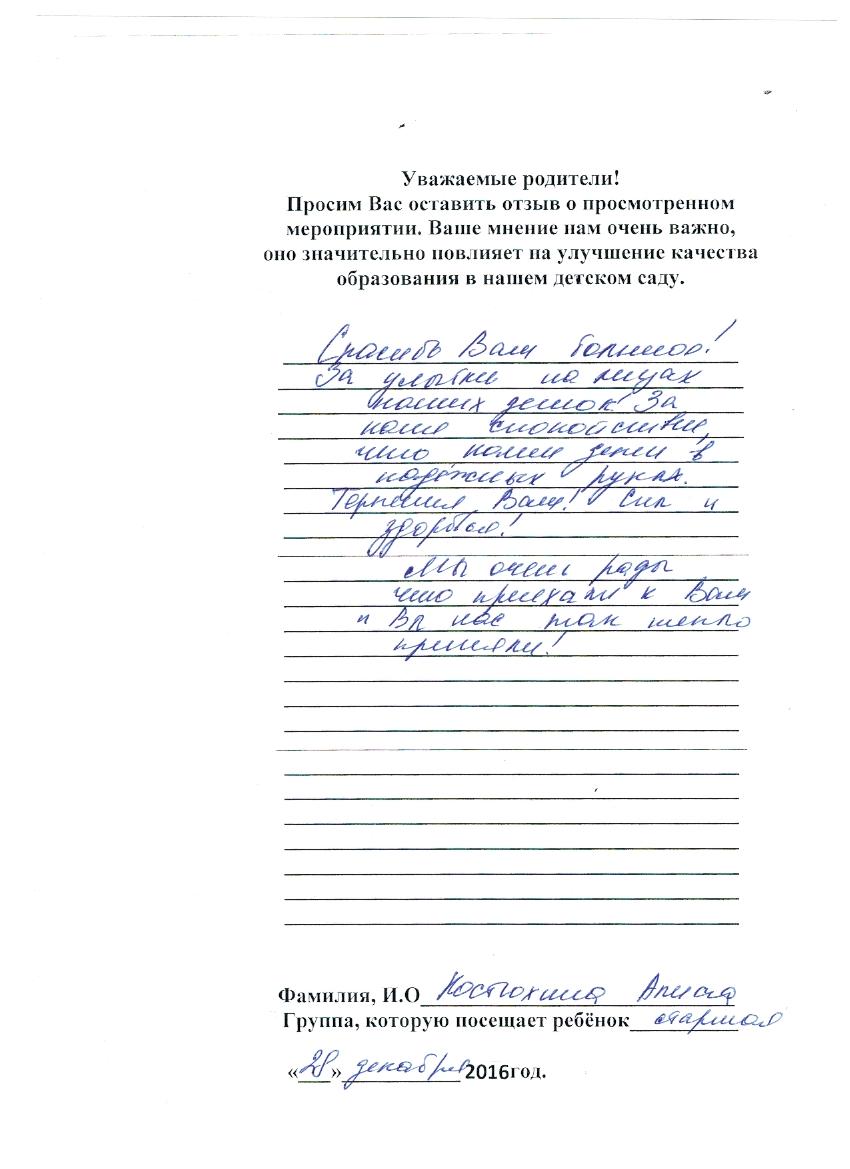 Уважаемые родители!
Просим Вас оставить отзыв о просмотренном
мероприятии. Ваше мнение нам очень важно,
оно значительно повлияет на улучшение качества
образования в нашем детском саду.
Спасибо Вам большое!
За улыбки на лицах
наших деток! За
наше спокойствие,
что наши дети в
надёжных руках.
Терпения Вам! Сил и
здоровья!
Мы очень рады
что приехали к Вам
и Вы нас так тепло
приняли!
Фамилия, И.О Костюхина Алиса
Группа, которую посещает ребёнок старшая
«28» декабря 2016год.